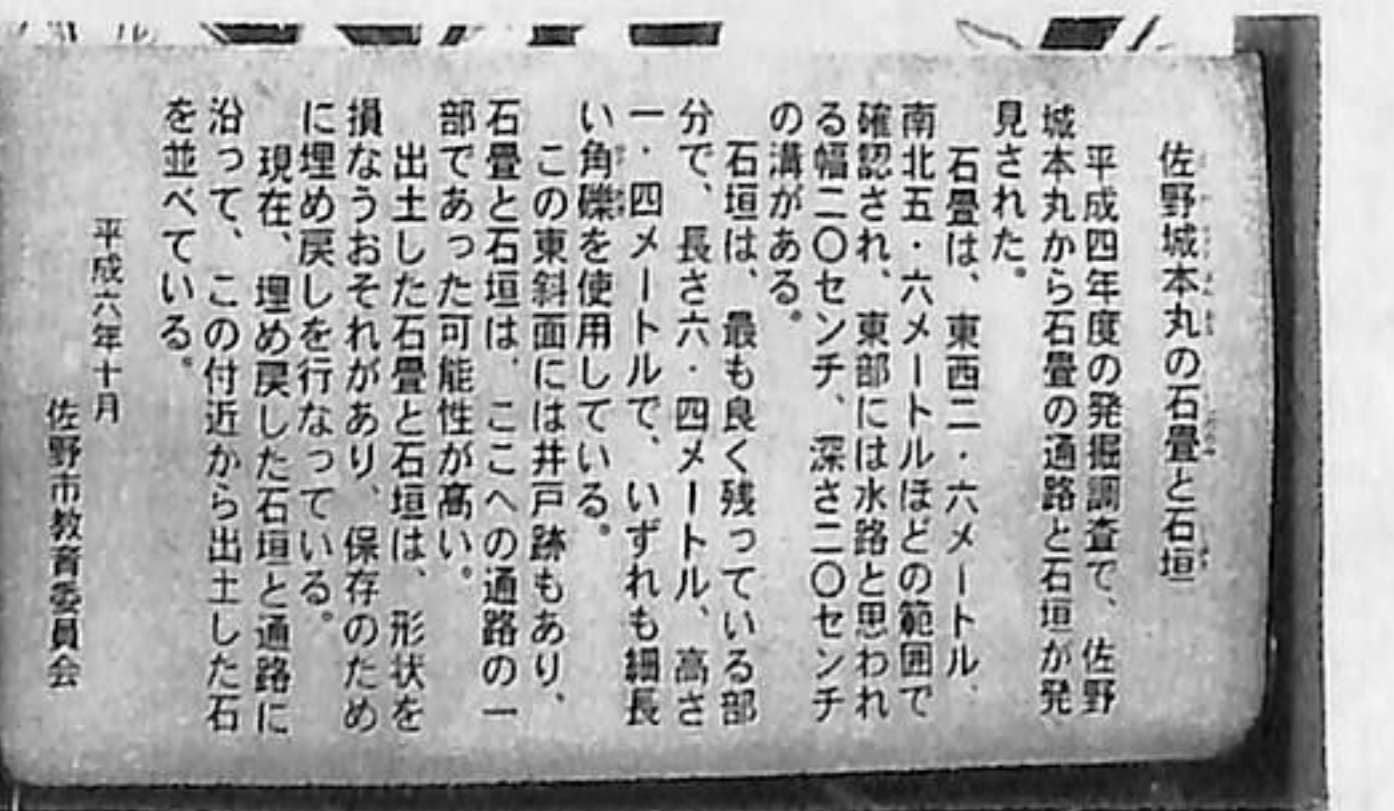 佐野城本丸の石畳と石垣
平成四年度の発掘調査で、佐野
城本丸から石畳の通路と石垣が発
見された。
石畳は、東西二・六メートル、
南北五・六メートルほどの範囲で
確認され、東部には水路と思われ
る幅二〇センチ、深さ二〇センチ
の溝がある。
石垣は、最も良く残っている部
分で、長さ六・四メートル、高さ
一・四メートルで、いずれも細長
い角礫を使用している。
この東斜面には井戸跡もあり、
石畳と石垣は、ここへの通路の一
部であった可能性が高い。
出土した石畳と石垣は、形状を
損なうおそれがあり、保存のため
に埋め戻しを行なっている。
現在、埋め戻した石垣と通路に
沿って、この付近から出土した石
を並べている。
平成六年十月
佐野市教育委員会